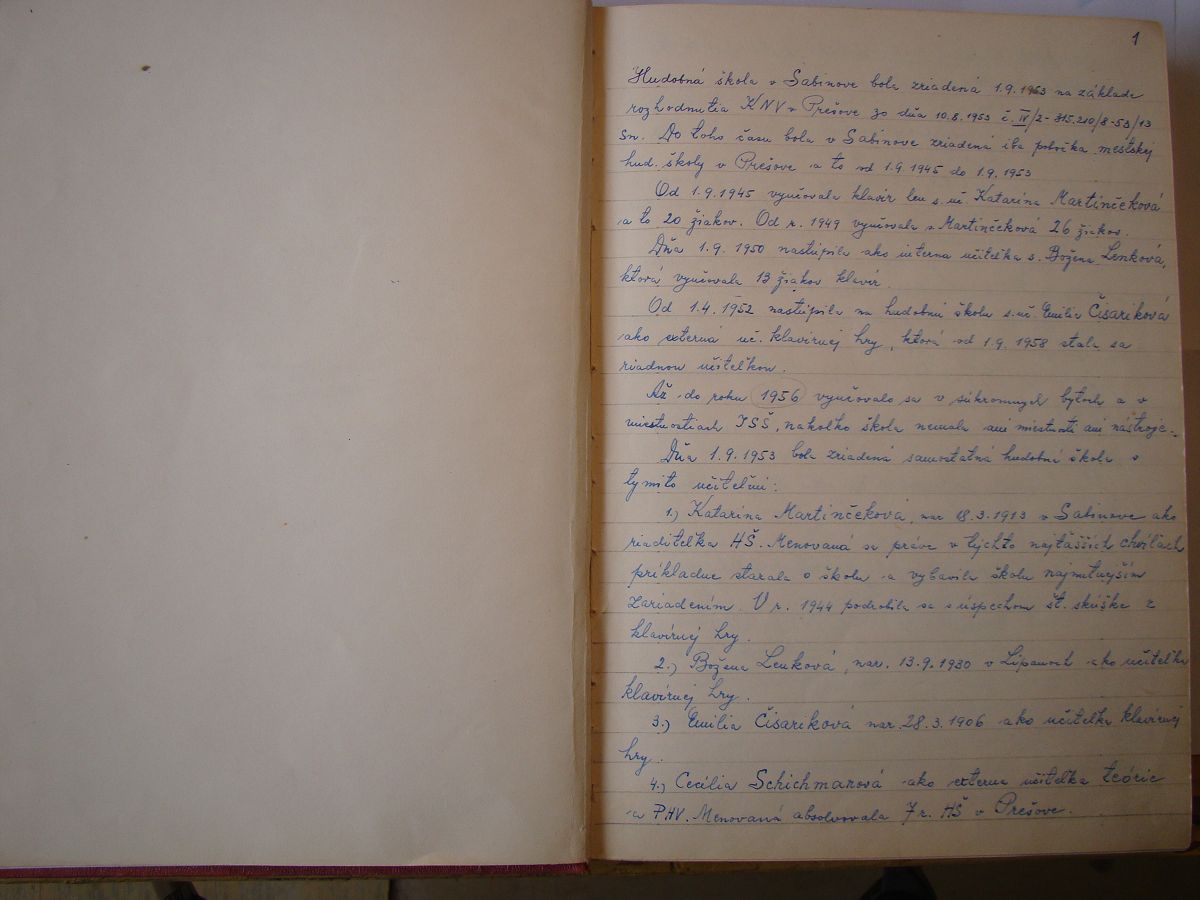 1
Hudobná škola v Sabinove bola zriadená 1.9.1953 na základe
rozhodnutia KNV v Prešove zo dňa 10.8.1953 č. IV/2-315.210/8-53/13
Sn. Do toho času bola v Sabinove zriadená iba pobočka mestskej
hud. školy v Prešove a to od 1.9.1945 do 1.9.1953
Od 1.9.1945 vyučovala klavír len s. uč. Katarína Martinčeková
a to 20 žiakov. Od r. 1949 vyučovala s. Martinčeková 26 žiakov.
Dňa 1.9.1950 nastúpila ako interna učiteľka s. Božena Lenková,
ktorá vyučovala 13 žiakov klavír.
Od 1.4.1952 nastúpila na hudobnú školu s. uč. Emilia Čisariková
ako externá uč. klavírnej hry, ktorá od 1.9.1958 stala sa
riadnou učiteľkou.
Až do roku 1956 vyučovalo sa v súkromných bytoch a v
miestnostiach JSŠ, nakoľko škola nemala ani miestnosti ani nástroje.
Dňa 1.9.1953 bola zriadená samostatná hudobná škola s
týmito učiteľmi:
1.) Katarína Martinčeková, nar. 8.3.1913 v Sabinove ako
riaditeľka HŠ. Menovaná sa práve v týchto najťažších chvíľach
príkladne starala o školu a vybavila školu najnutnejším
zariadením. V r. 1944 podrobila sa s úspechom št. skúške z
klavírnej hry.
2.) Božena Lenková, nar. 13.9.1930 v Lipanoch ako učiteľka
klavírnej hry.
3.) Emilia Čisariková nar. 28.3.1906 ako učiteľka klavírnej
hry.
4.) Cecília Schichmanová ako externa učiteľka teórie
a PHV. Menovaná absolvovala 7 r. HŠ v Prešove.